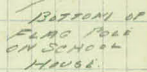 BOTTOM OF
FLAG POLE
ON SCHOOL
HOUSE.